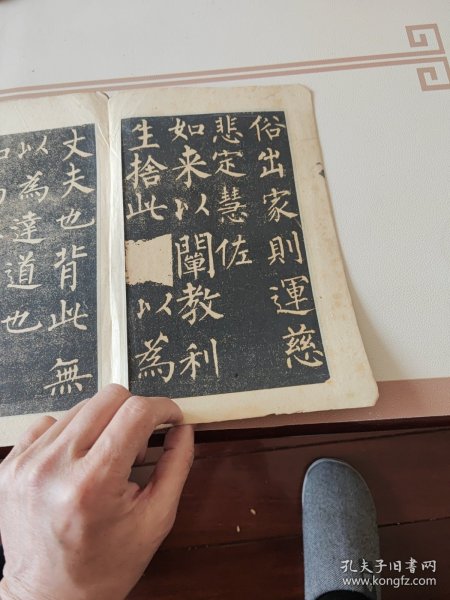 俗出家則運慈
悲定慧佐
如来以闡教利
生捨此以為
丈夫也背此無
以為達道也
孔夫子旧书网
www.kongfz.com